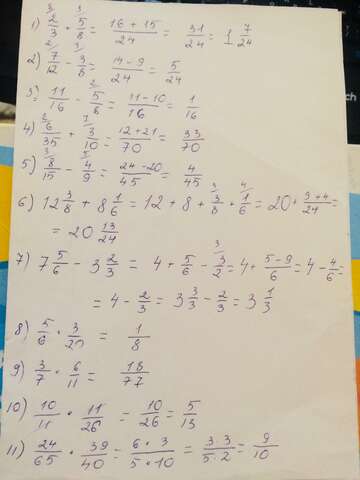 1) 2/3 + 5/8 = (16+15)/24 = 31/24 = 1 7/24
2) 7/12 - 3/8 = (14-9)/24 = 5/24
3) 11/16 - 5/8 = (11-10)/16 = 1/16
4) 6/35 + 3/10 = (12+21)/70 = 33/70
5) 8/15 - 4/9 = (24-20)/45 = 4/45
6) 12 3/8 + 8 1/6 = 12 + 8 + 3/8 + 1/6 = 20 + (9+4)/24 =
= 20 13/24
7) 7 5/6 - 3 2/3 = 4 + 5/6 - 3/2 = 4 + (5-9)/6 = 4 - 4/6 =
= 4 - 2/3 = 3 3/3 - 2/3 = 3 1/3
8) 5/6 · 3/20 = 1/8
9) 3/7 · 6/11 = 18/77
10) 10/11 · 11/26 = 10/26 = 5/13
11) 24/65 · 39/40 = (6·3)/(5·10) = (3·3)/(5·2) = 9/10